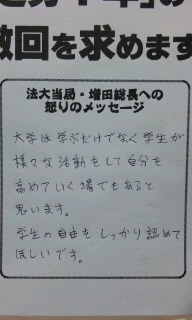 撤回を求めます
法大当局・増田総長への
怒りのメッセージ
大学は学ぶだけでなく学生が
様々な活動をして自分を
高めていく場でもあると
思います。
学生の自由をしっかり認めて
ほしいです。